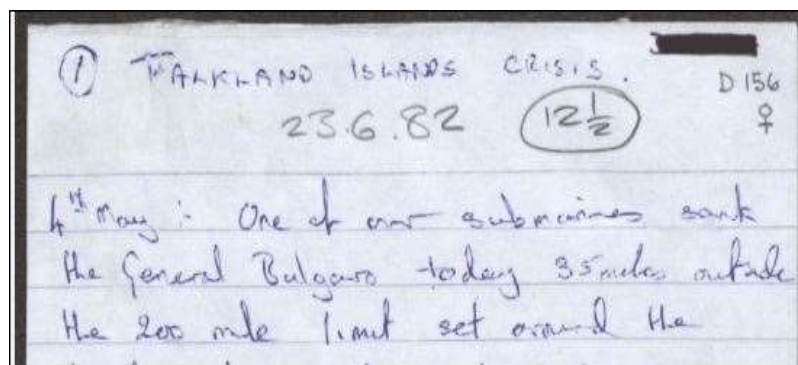 ① FALKLAND ISLANDS CRISIS.
D 156
23.6.82 12½ ♀
4th May :- One of our submarines sank
the General Bulgaro today 35 miles outside
the 200 mile limit set around the